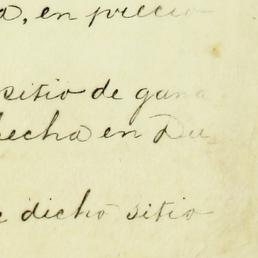 a, en precio
sitio de gana
hecha en Du
e dicho sitio